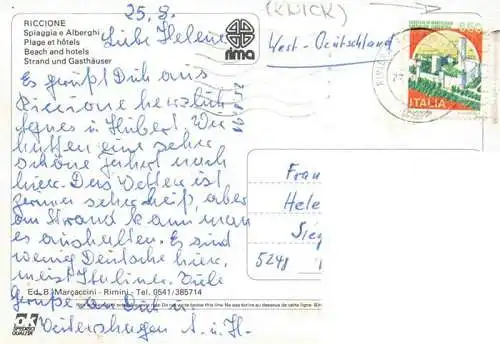 25.8.
(KNICK)
RICCIONE
Spiaggia e Alberghi
Plage et hôtels
Beach and hotels
Strand und Gasthäuser
rima
650
ITALIA
Liebe Helene
West-Deutschland
Es grüßt Dich aus
Riccione herzlich
Agnes u. Hubert. Wir
hatten eine sehr
schöne Fahrt nach
hier. Das Wetter ist
sehr heiß, aber
am Strand kann man
es aushalten. Es sind
wenig Deutsche hier,
meist Italiener. Viele
Grüße an Dich u.
Weitershagen A. u. H.
Frau
Hele
Sieg
5248
Ed. B. Marçaccini - Rimini - Tel. 0541/385714